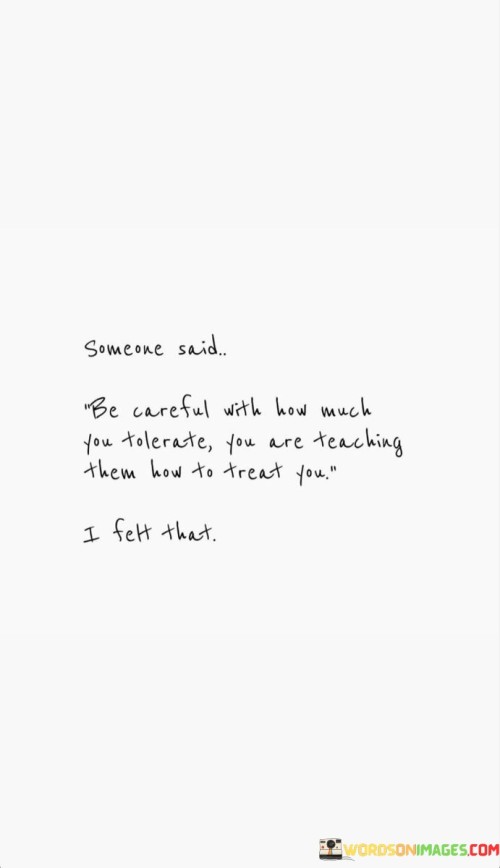 Someone said..
"Be careful with how much
you tolerate, you are teaching
them how to treat you."
I felt that.
WORDSONIMAGES.COM